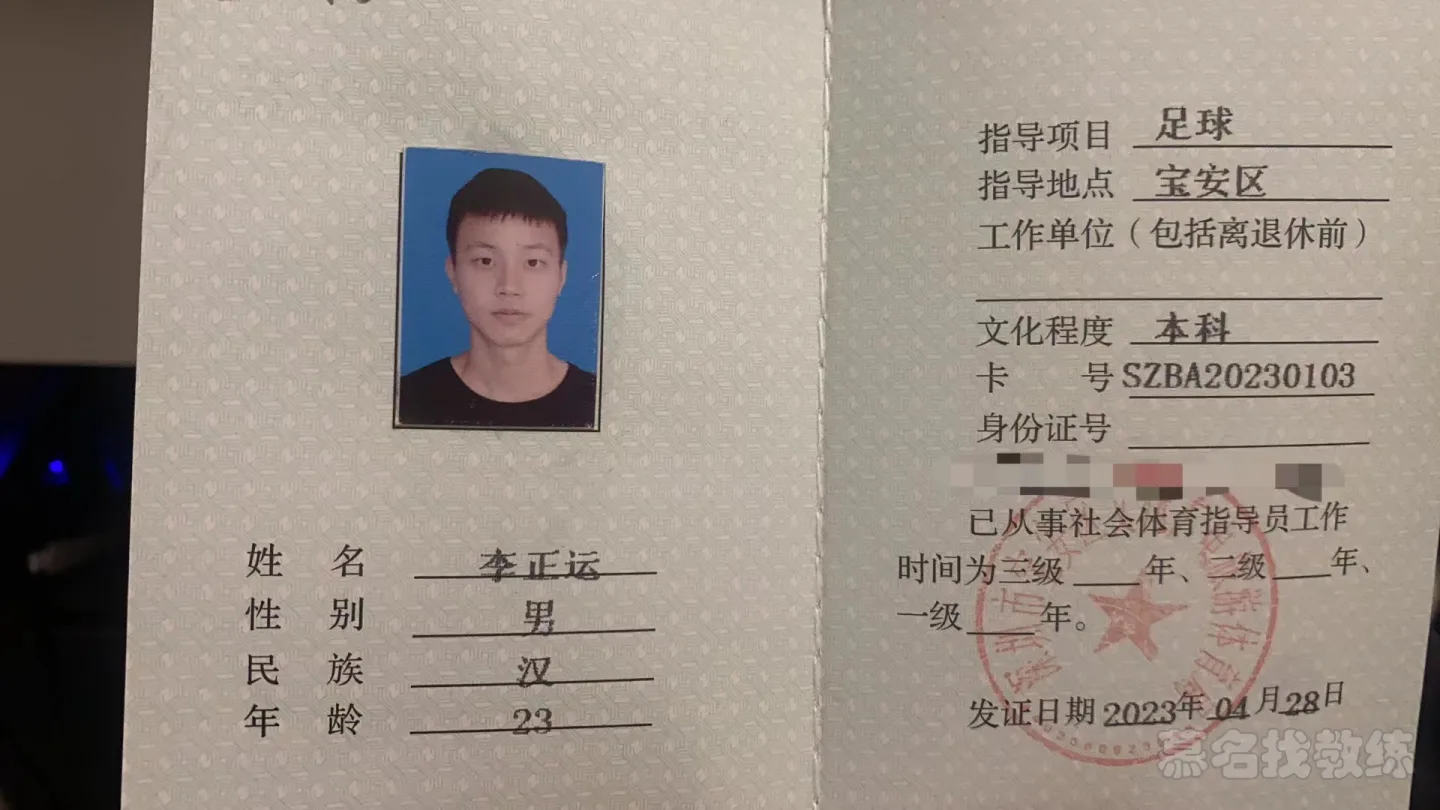 姓 名 李正运
性 别 男
民 族 汉
年 龄 23
指导项目 足球
指导地点 宝安区
工作单位（包括离退休前）
文化程度 本科
卡 号 SZBA20230103
身份证号
已从事社会体育指导员工作
时间为三级____年、二级____年、
一级____年。
发证日期 2023年04月28日
慕名找教练